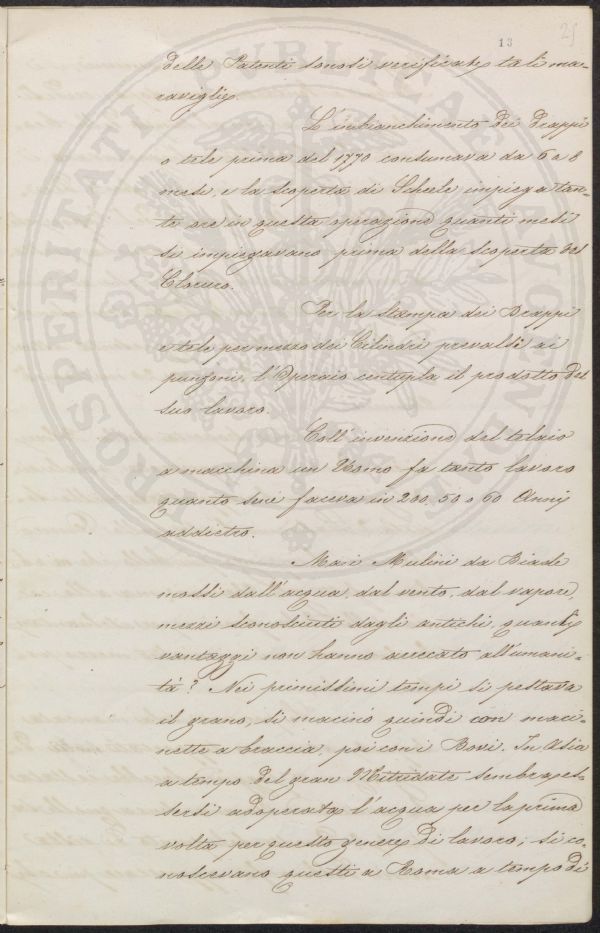 13
25
delle Patenti sonosi verificate tali ma-
raviglie.
L'imbianchimento dei Drappi
o tele prima del 1770 consumava da 6 a 8
mesi, e la scoperta di Scheele impiega tan-
te ore in questa operazione quanti mesi
si impiegavano prima della scoperta del
Cloruro.
Per la stampa dei Drappi
e tele per mezzo dei Cilindri prevalsi ai
punzoni, l'Operaio centupla il prodotto del
suo lavoro.
Coll'invenzione del telaio
a macchina un Uomo fa tanto lavoro
quanto sene faceva in 200. 50 o 60 Anni
addietro.
Mai i Mulini da Biade
mossi dall'acqua, dal vento, dal vapore,
mezzi sconosciuti dagli antichi, quanti
vantaggi non hanno arrecato all'umani-
tà? Nei primissimi tempi si pestava
il grano, si macinò quindi con maci-
nette a braccia, poi con i Bovi. In Asia
a tempo del gran Mitridate sembra es-
sersi adoperata l'acqua per la prima
volta per questo genere di lavoro; si co-
noscevano questi a Roma a tempo di
PROSPERITATI PUBLICAE AVGENDAE